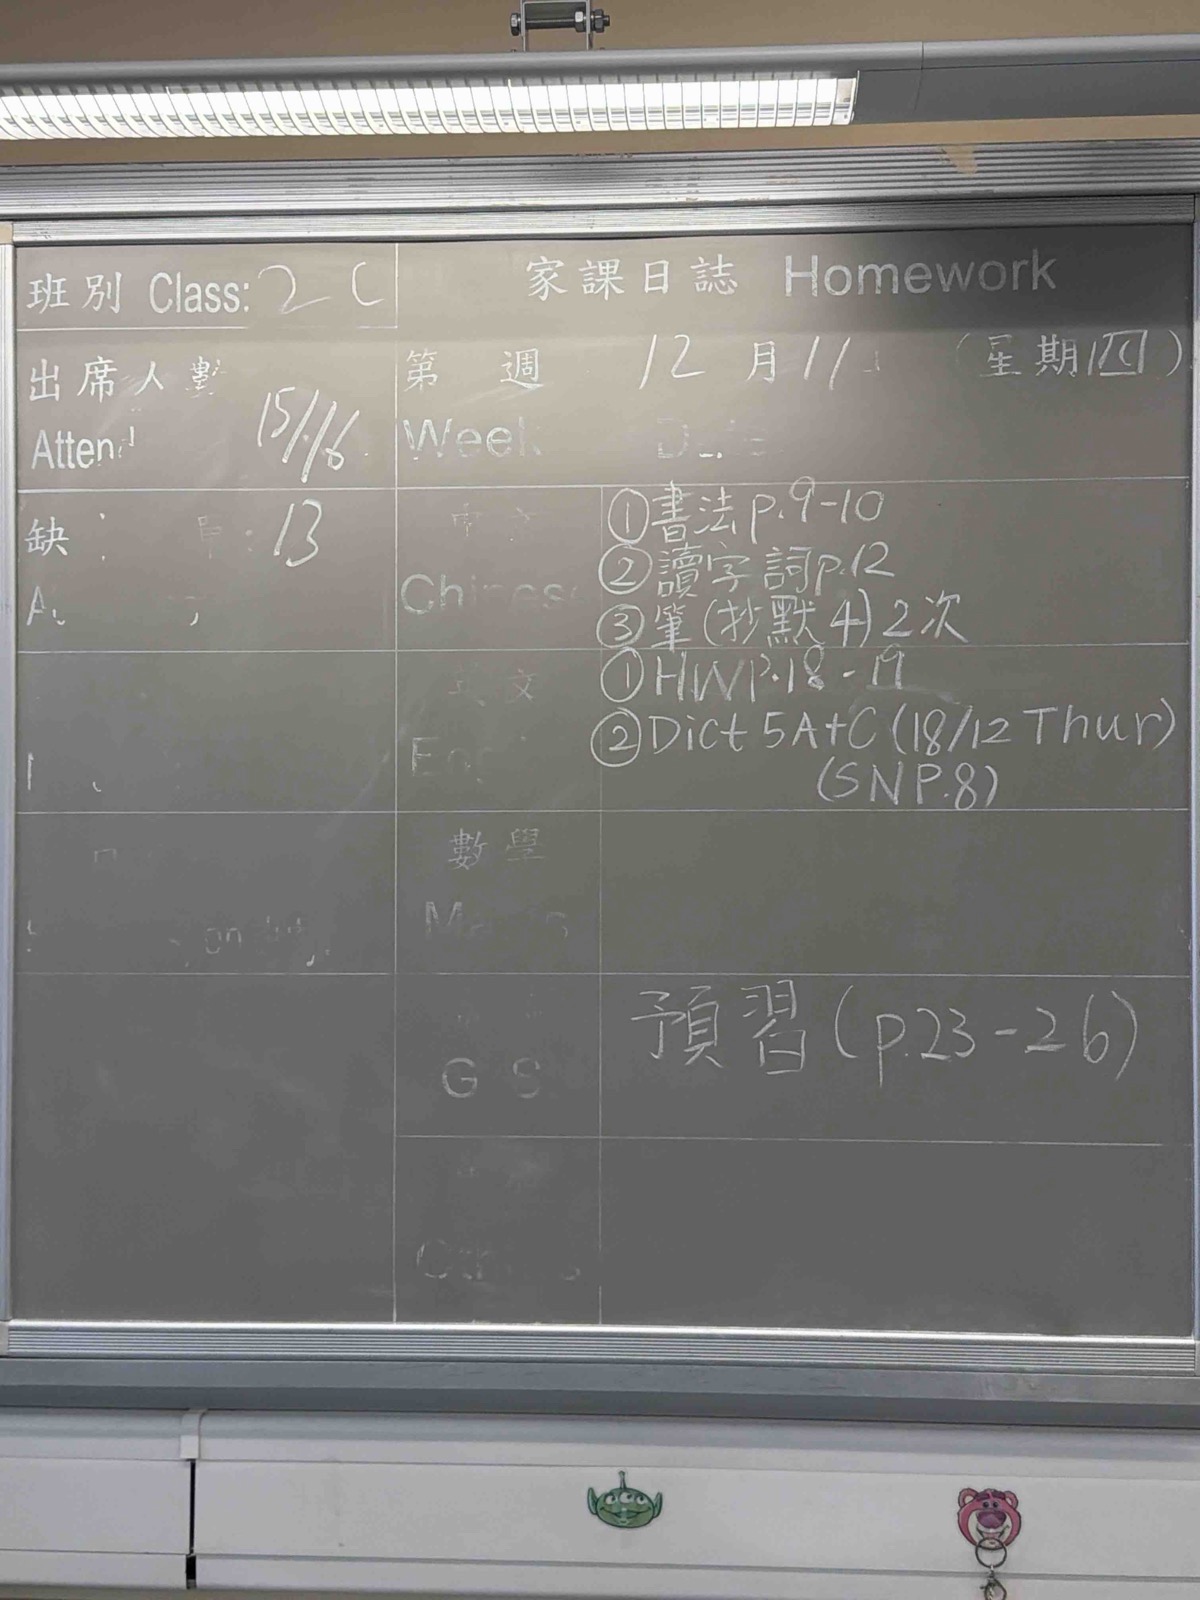 班別 Class: 2C
家課日誌 Homework
出席人數
Atten
15/16
第 週 12月11 (星期四)
Week
缺 : 13
Chinese
①書法p.9-10
②讀字詞p.12
③筆(抄默4)2次
文
①HWP.18-19
②Dict 5A+C (18/12 Thur)
(SNP.8)
數學
G S
預習(p.23-26)